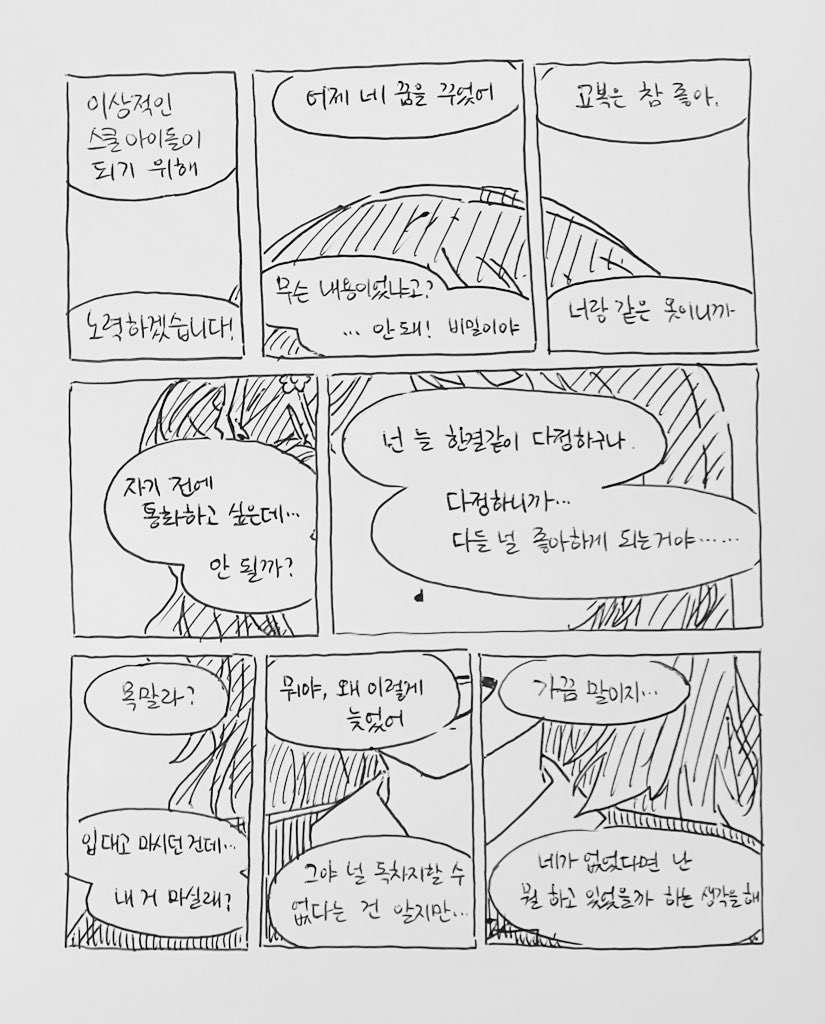 이상적인
스쿨아이돌이
되기 위해
노력하겠습니다!
어제 네 꿈을 꾸었어
무슨 내용이었냐고?
... 안돼! 비밀이야
교복은 참 좋아.
너랑 같은 옷이니까
자기 전에
통화하고 싶은데...
안 될까?
넌 늘 한결같이 다정하구나.
다정하니까...
다들 널 좋아하게 되는거야......
목말라?
입대고 마시던 건데...
내 거 마실래?
뭐야, 왜 이렇게
늦었어
그야 널 독차지할 수
없다는 건 알지만...
가끔 말이지...
네가 없었다면 난
뭘 하고 있었을까 하는 생각을 해